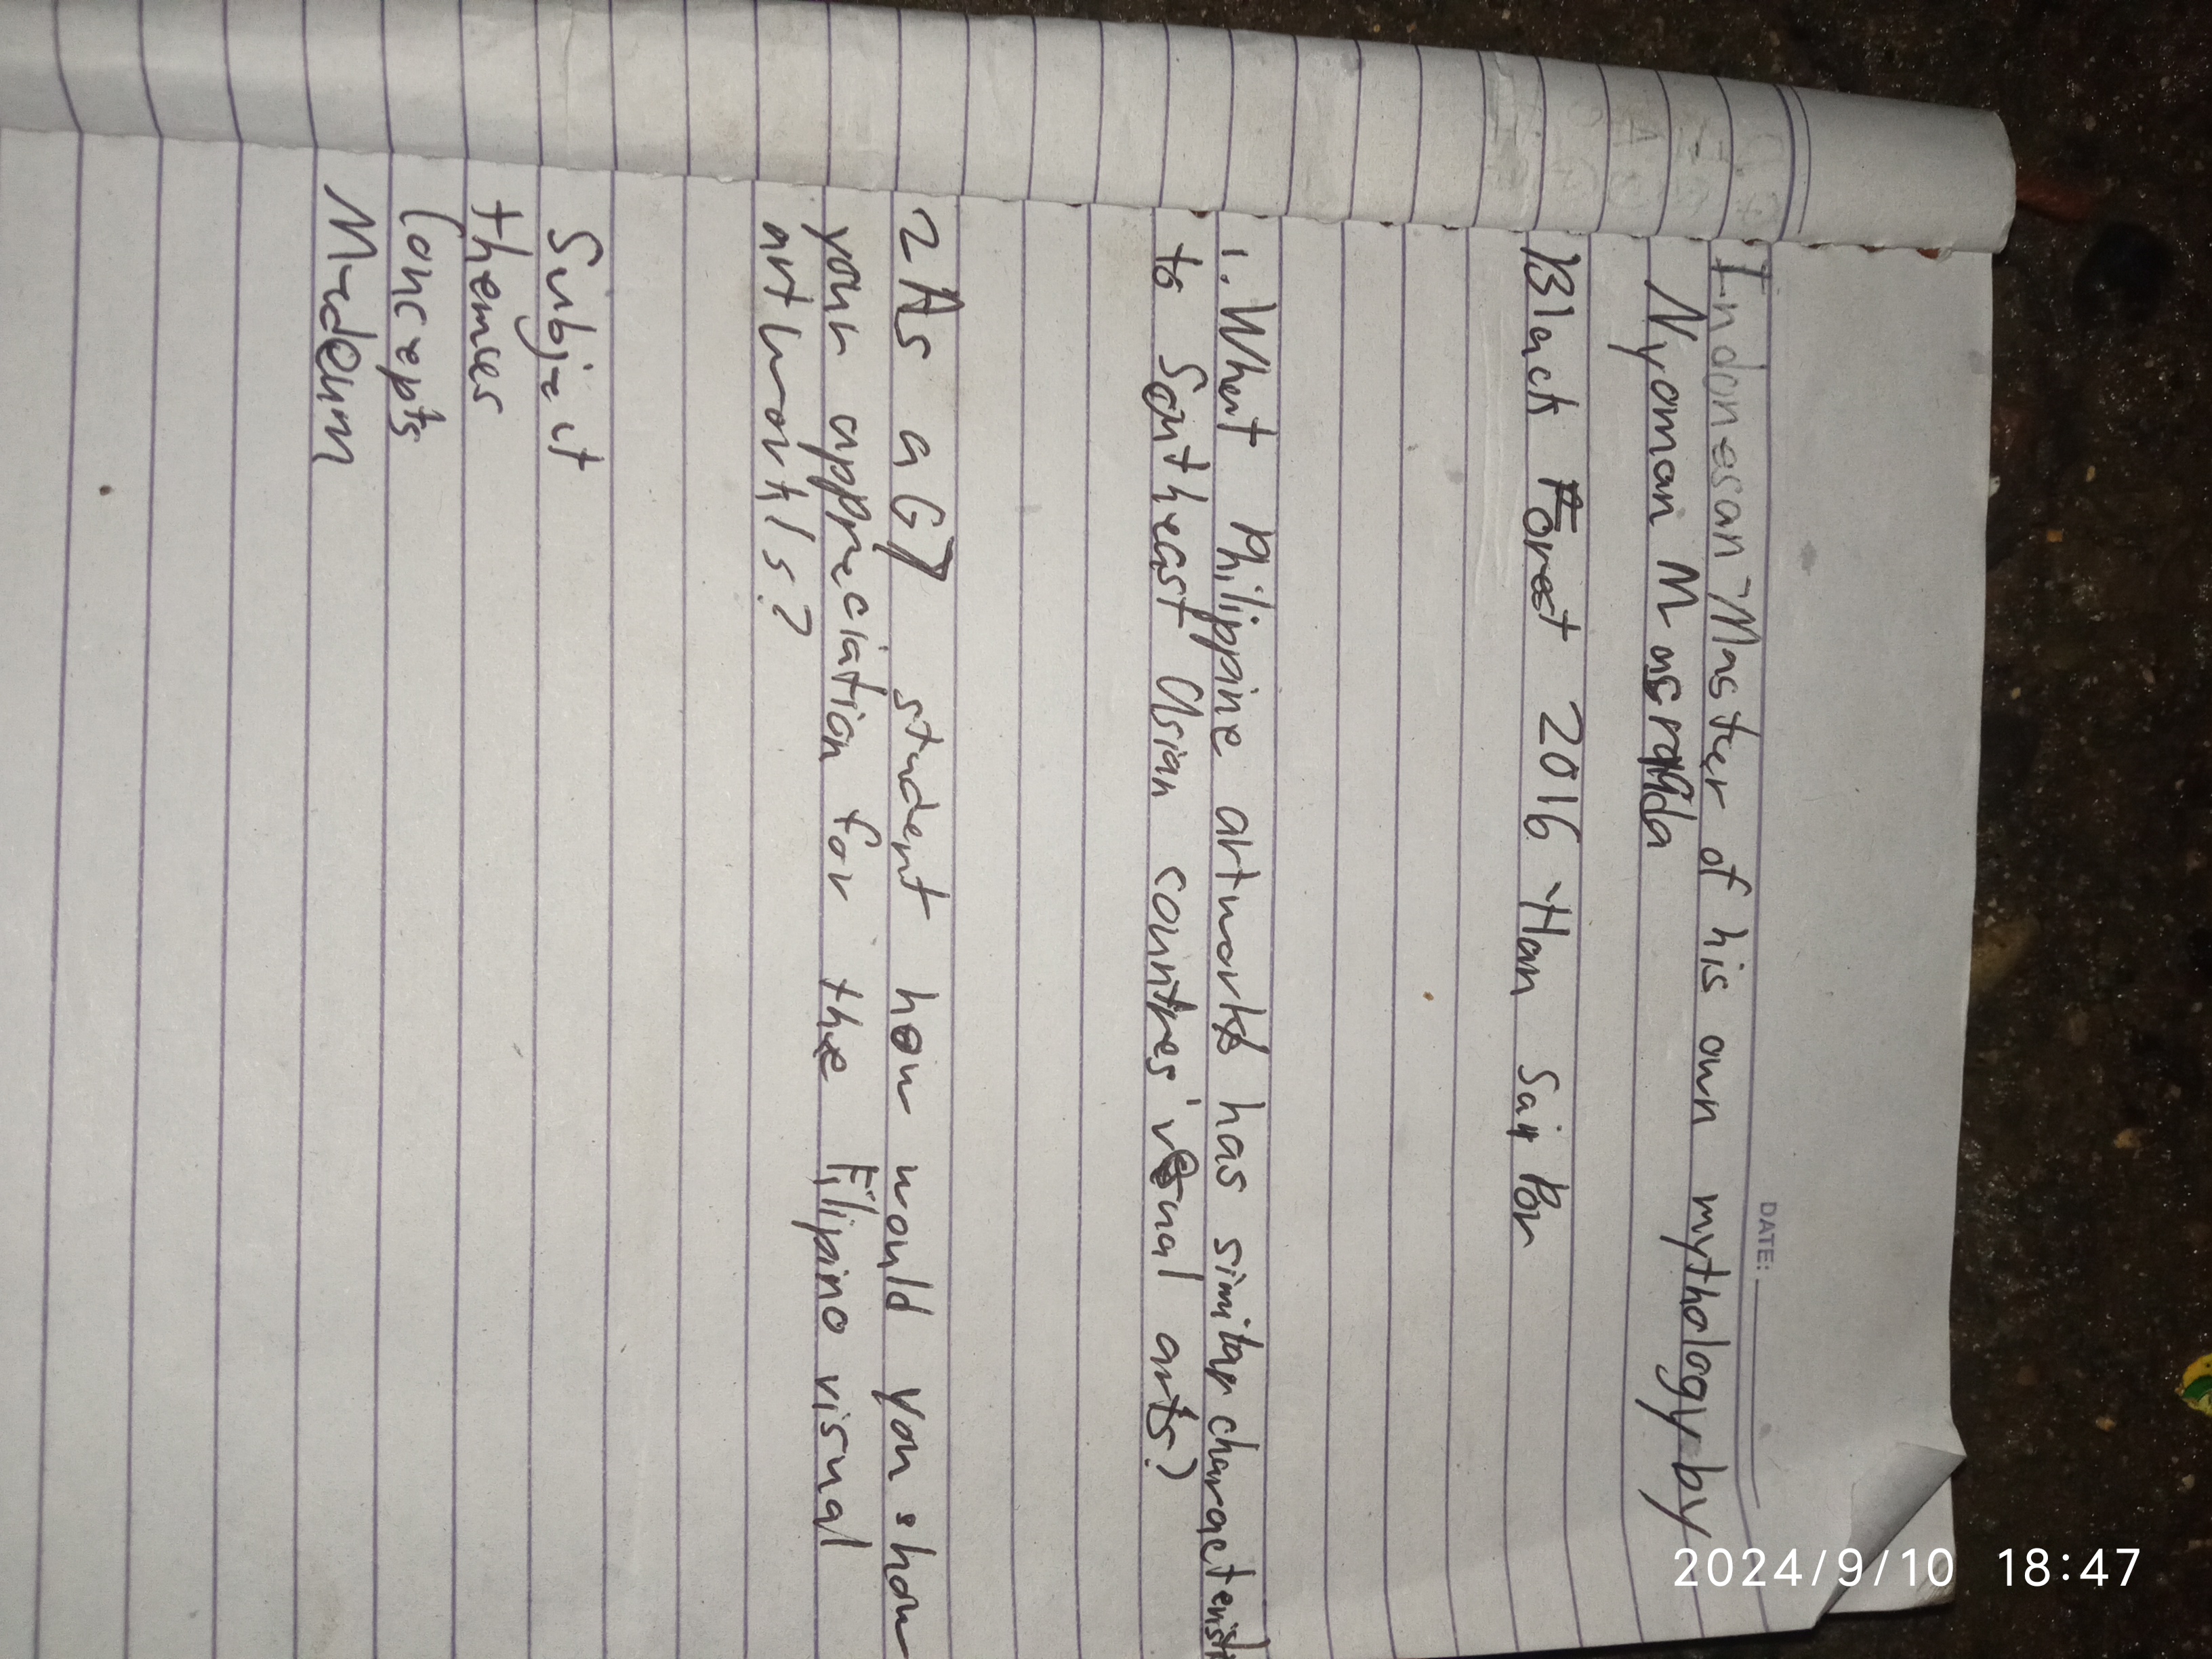 DATE:
Indonesan-Master of his own mythology by
Nyoman Masraida
Black Forest 2016 Han Sai Por
1. What Philippine artworks has similar characterist
to Southeast Asian countres' visual arts?
2 As a G7 student how would you show
your appreciation for the Filipino visual
artwork/s?
Subject
themes
Concepts
Medium
2024/9/10 18:47